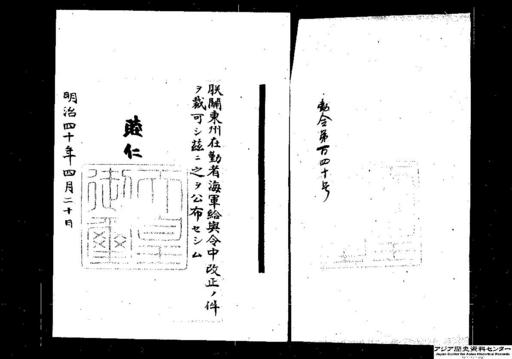 勅令第百四十号
朕關東州在勤者海軍給與令中改正ノ件
ヲ裁可シ茲ニ之ヲ公布セシム
睦仁
天皇御璽
明治四十年四月二十日
アジア歴史資料センター
Japan Center for Asian Historical Records